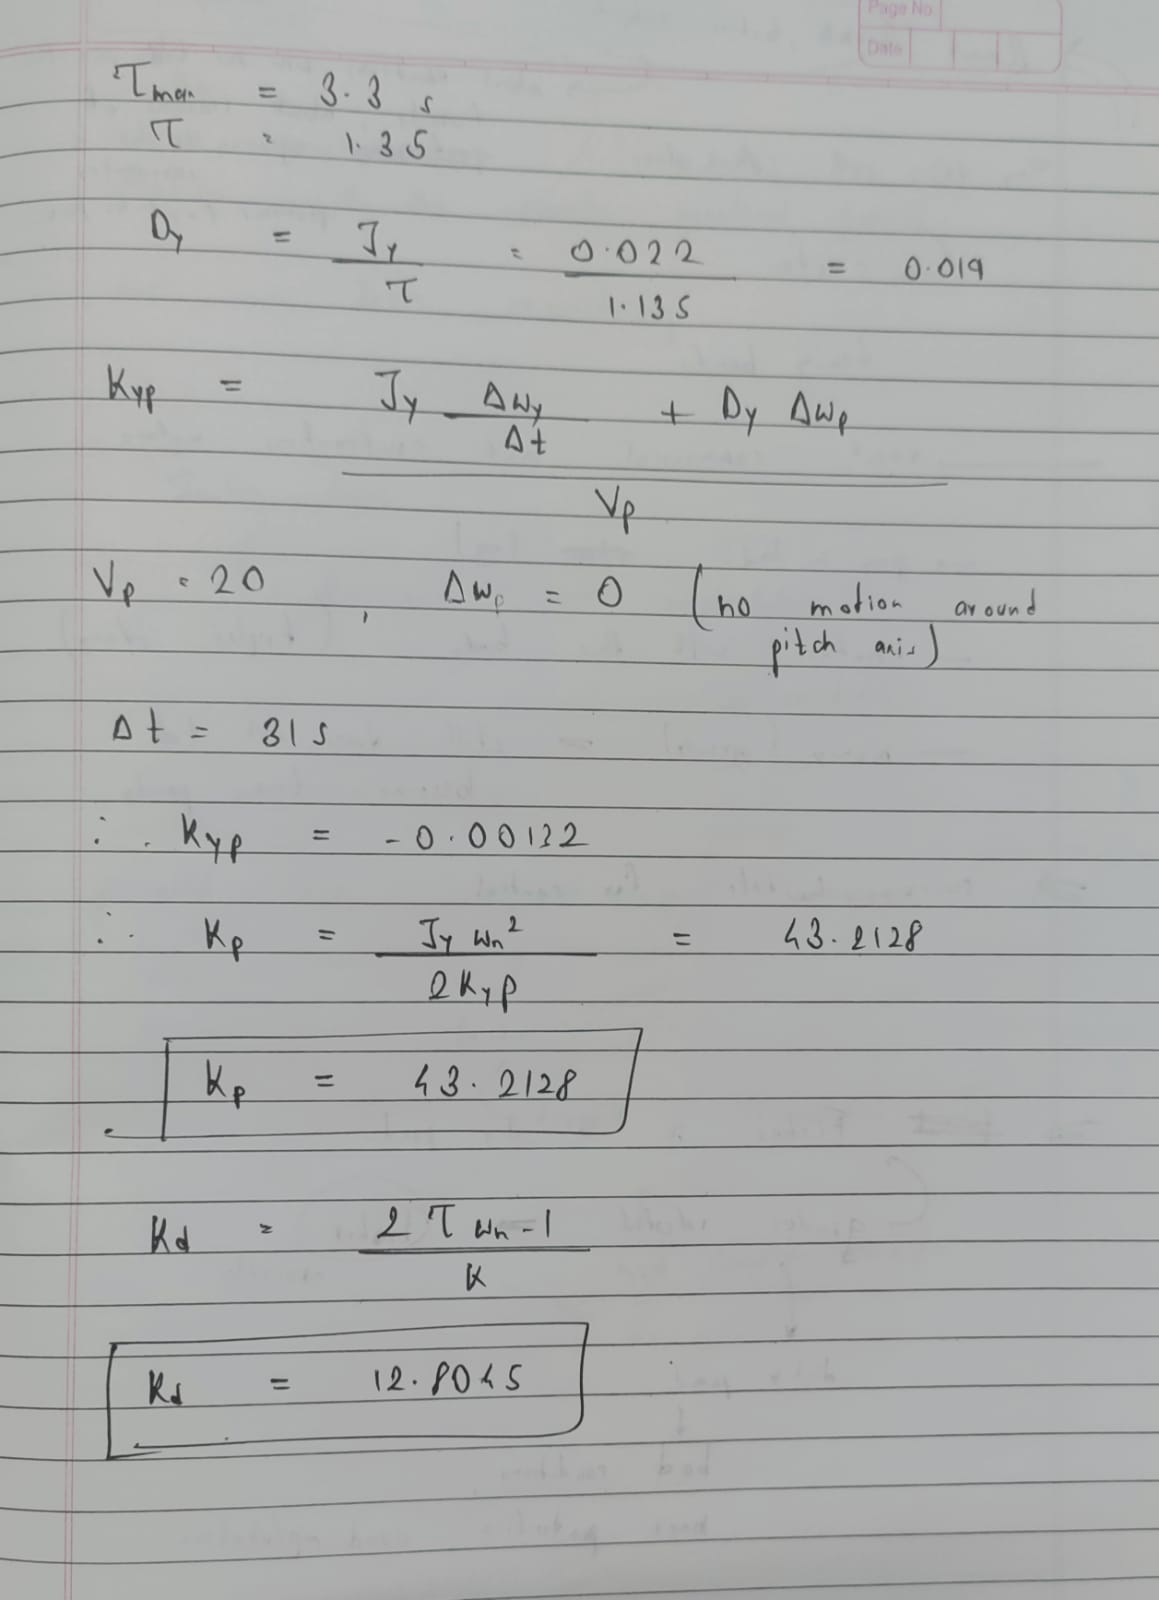 Page No
Date
τmax = 3.3 s
τ = 1.35
Dy = Jy / τ = 0.022 / 1.135 = 0.019
Kyp = (Jy Δωy / Δt + Dy Δωp) / Vp
Vp = 20 , Δωp = 0 (no motion around
pitch axis)
Δt = 31s
∴ Kyp = -0.00132
∴ Kp = Jy ωn² / 2Kyp = 43.2128
Kp = 43.2128
Kd = 2 τ ωn - 1 / K
Kd = 12.8045